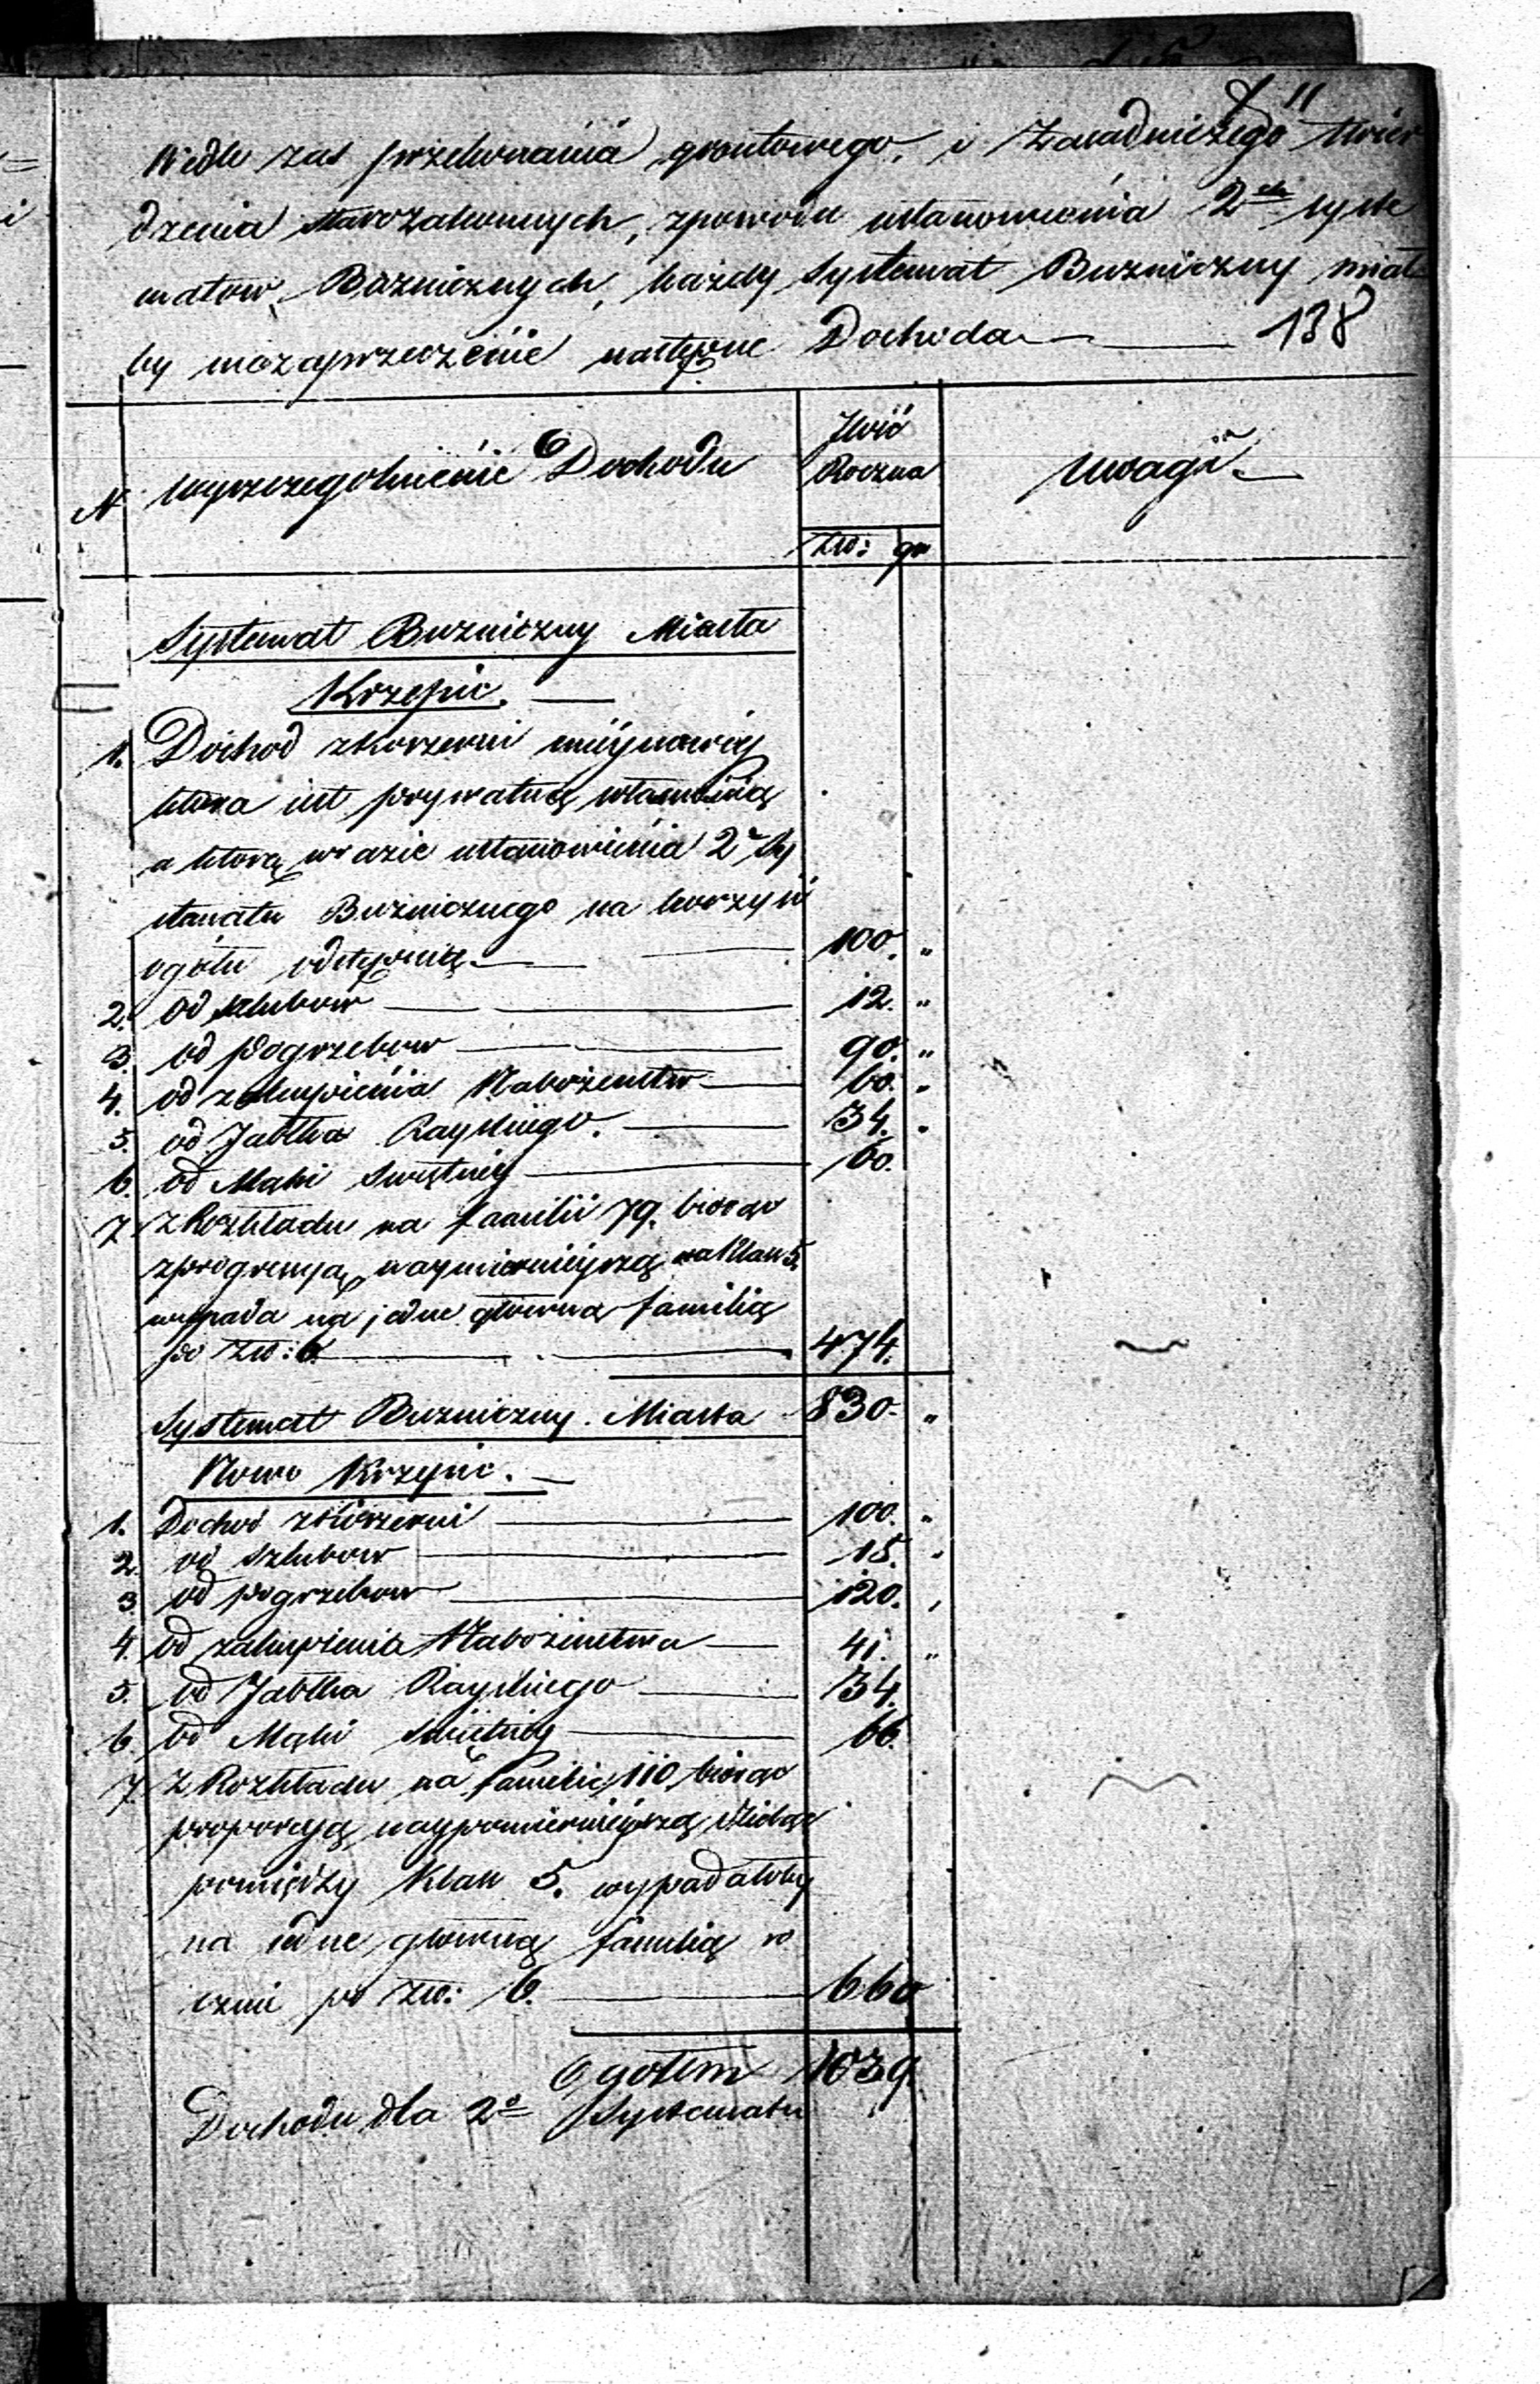 11
Wedle zas przekonania gruntowego, i Zasadniczego twier
dzenia starozakonnych, zpowodu ustanowienia 2ch syste
matow Bozniczych, każdy Systemat Buzniczny miał
by niezaprzeczenie następne Dochoda 138
N Wyszczegolnienie Dochodu
Ilość
Roczna
Uwagi
Zło: gr
Systemat Buzniczny Miasta
Krzepic.
1. Dochod zkorzenni
ktora iest prywatną własnością
a ktorą w razie ustanowienia 2o Sy
stematu Buznicznego na korzyść
ogółu odstępuią 100. „
2. Od szlubow 12. „
3. od pogrzebow 90. „
4. od zakupienia Nabożenstw 60. „
5. od Jabłka Rayskiego. 34. „
6. od Mąki Swiętney 60.
7 Z Rozkładu na familii 79. biorąc
na Klass 5.
wypada na jedne głowną familią
po Zło: 6. 474.
830. „
Systemat Buzniczny. Miasta
Nowo Krzepic.
1. Dochod zkorzenni 100. „
2. od Szlubow 15. „
3. od pogrzebow 120. „
4. od zakupienia Nabożenstwa 41. „
5. od Jabłka Rayskiego 34.
6. od Mąki Swiętney 66.
7. Z Rozkładu na familie 110 biorąc
proporcyą naypomiernieyszą
pomiędzy Klass 5. wypadałoby
na iedne głowną familią ro
cznie po Zło: 6. 660
Ogołem 1039
Dochodu dla 2o Systematu